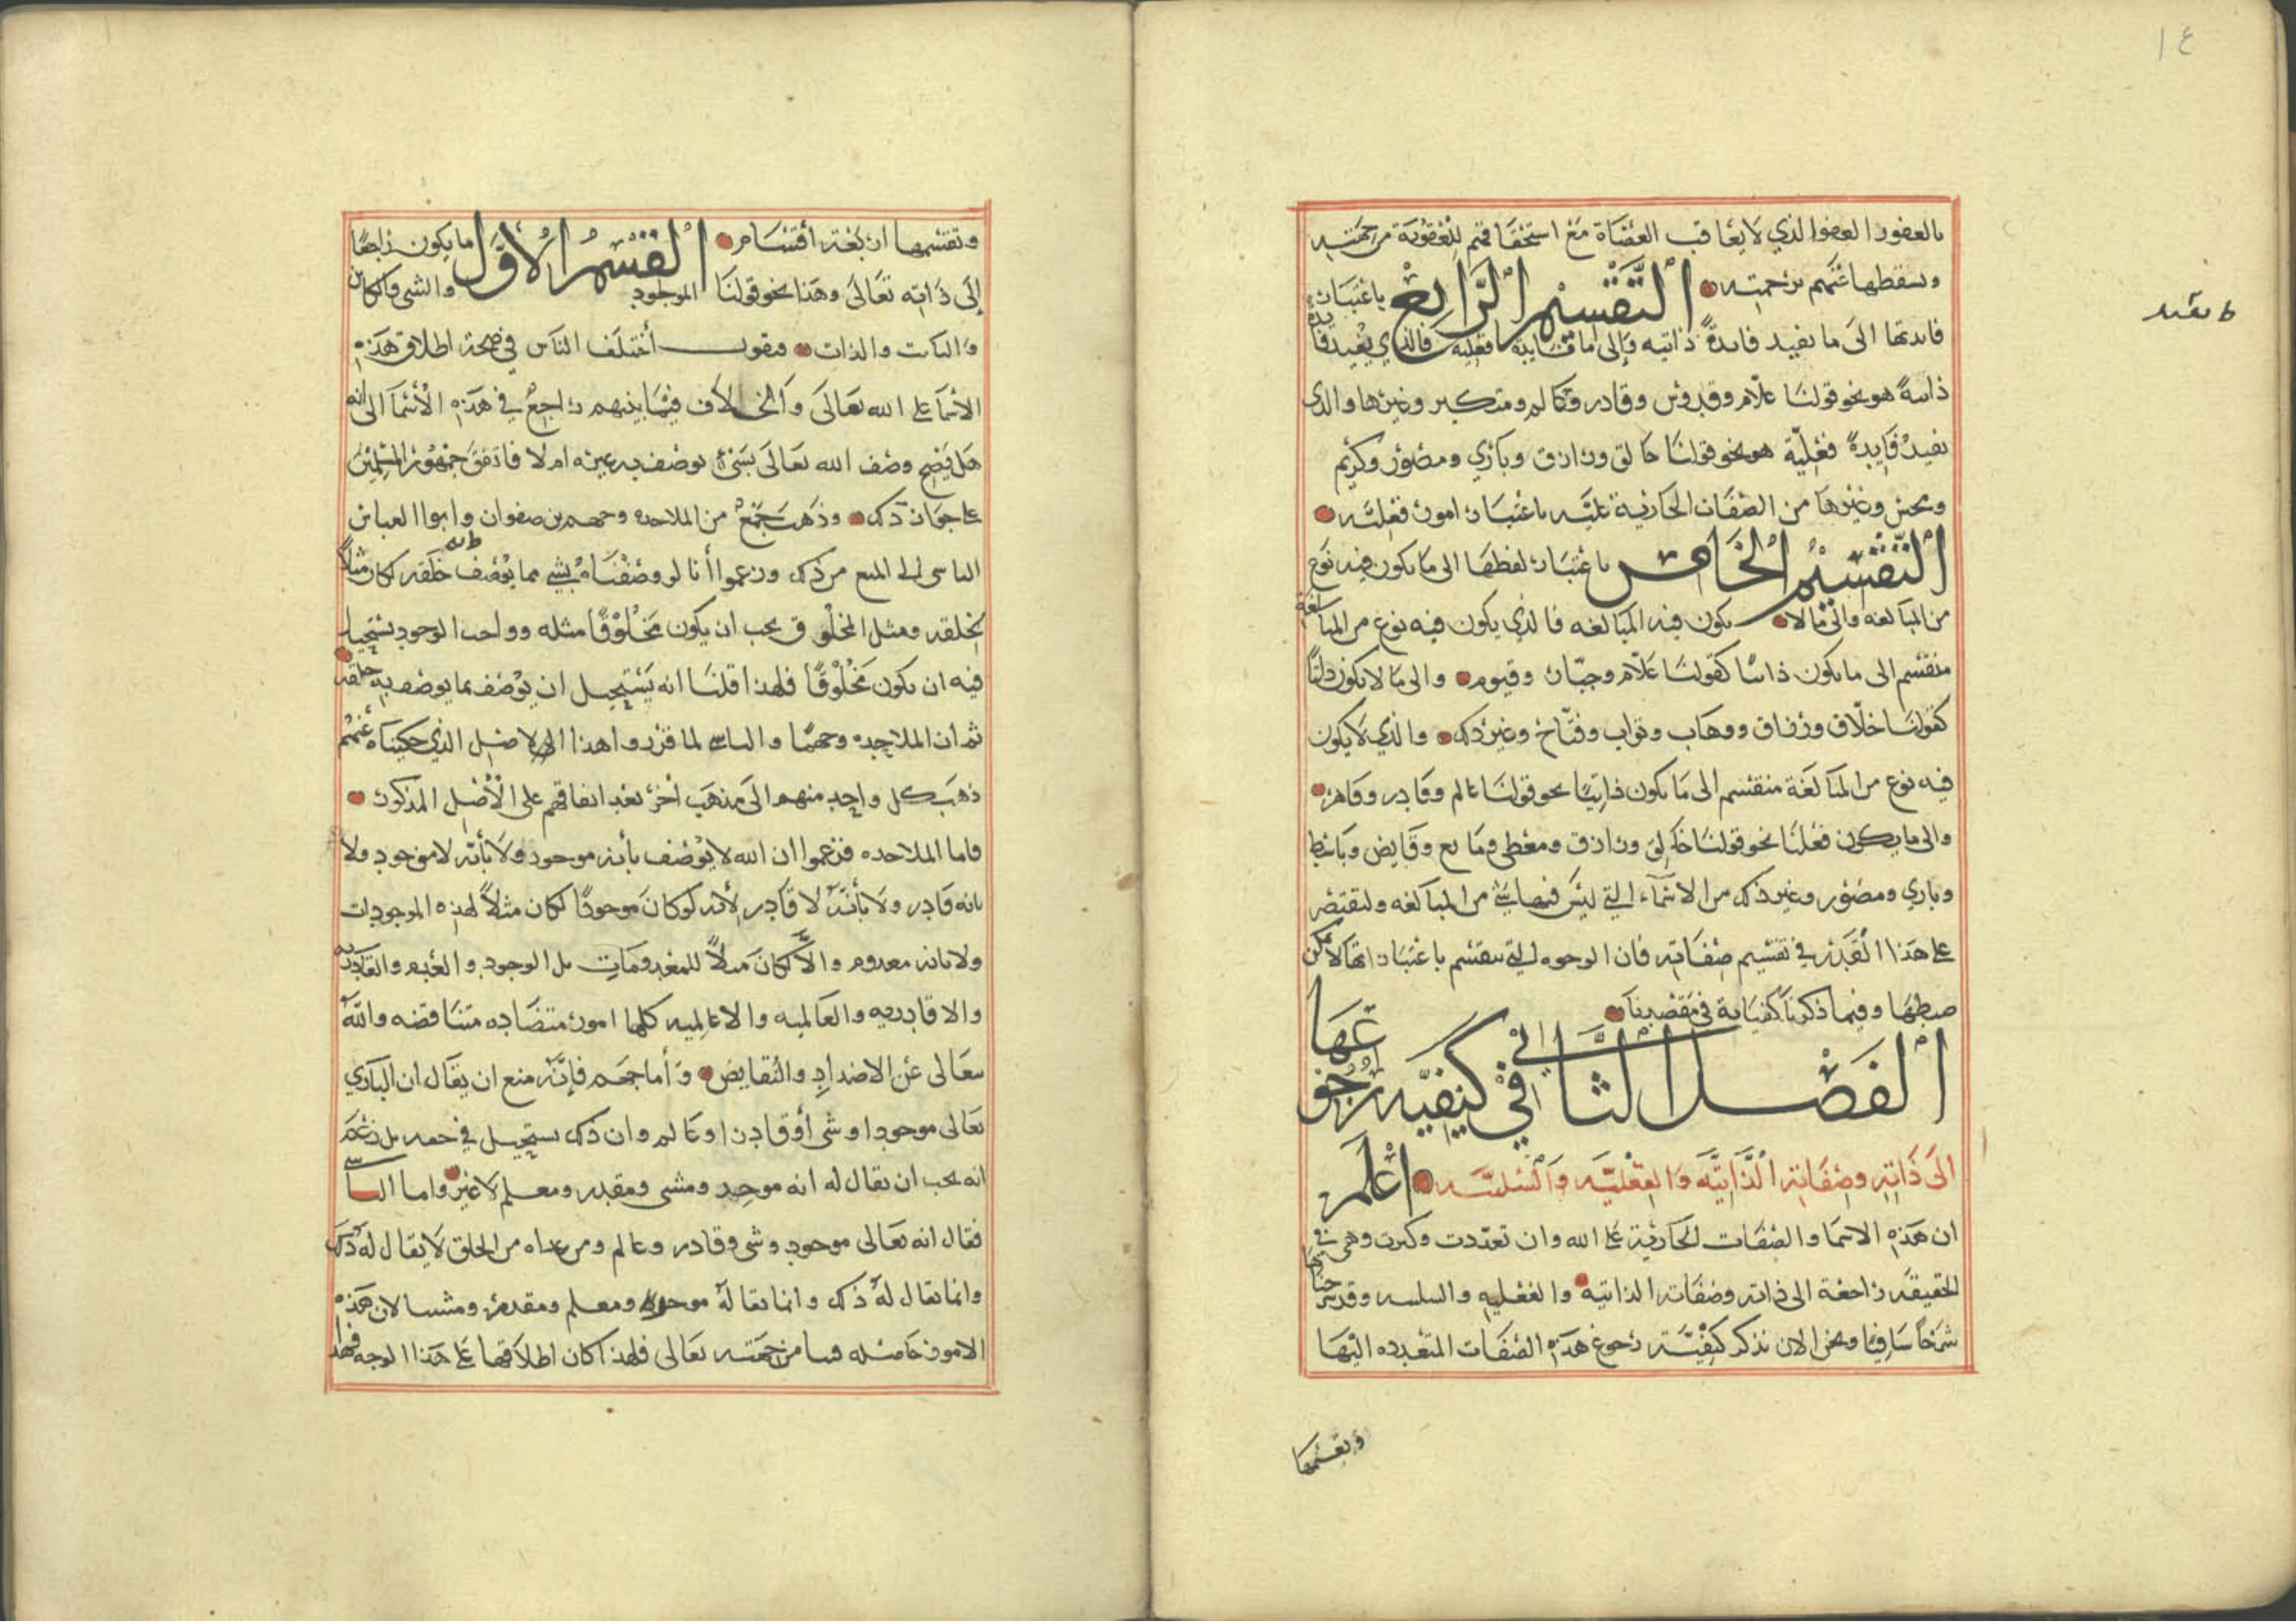 ١٤
بالعفو والعفو الذي لا يعاقب العصاة مع استحقاقهم للعقوبة من جهته
ويسقطها عنهم برحمته التقسيم الرابع باعتبار
فائدتها الى ما يفيد فايدة ذاتيه وإلى ما فايدة فعليه فالذي يفيد فايدة
ذاتية هو نحو قولنا علام وقدوس وقادر وعالم ومتكبر وغيرها والذي
يفيد فايدة فعلية هو نحو قولنا خالق ورازق وباري ومصور وكريم
ومحسن وغيرها من الصفات الجارية عليه باعتبار امور فعليه
التقسيم الخامس باعتبار لفظها الى ما يكون فيه نوع
من المبالغه والى ما لا يكون فيه المبالغه فالذي يكون فيه نوع من المبالغة
منقسم الى ما يكون ذاتيا كقولنا علام وجبار وقيوم والى ما لا يكون ذاتيا
كقولنا خلاق ورزاق ووهاب وتواب وفتاح وغير ذلك والذي لا يكون
فيه نوع من المبالغة منقسم الى ما يكون ذاتيا نحو قولنا عالم وقادر وقاهر
والى ما يكون فعليا نحو قولنا خالق ورازق ومعطي ومانع وقابض وباسط
وباري ومصور وغير ذلك من الاسماء التي ليس فيها شئ من المبالغه ولنقتصر
على هذا القدر في تقسيم صفاته فان الوجوه التي تنقسم باعتباراتها لا يمكن
ضبطها وفيما ذكرنا كفاية في مقصدنا
الفصل الثاني في كيفيه رجوعها
الى ذاته وصفاته الذاتيه والفعليه والسلبيه اعلم
ان هذه الاسما والصفات الجارية على الله وان تعددت وكثرت وهي في
الحقيقه راجعة الى ذاته وصفاته الذاتيه والفعليه والسلبيه وقد شرحناها
شرحا شافيا ونحن الان نذكر كيفية رجوع هذه الصفات المتعدده اليها
وتقسمها
وتقسمها اربعة أقسام القسم الأول ما يكون راجعا
إلى ذاته تعالى وهذا نحو قولنا الموجود والشي والكائن
والثابت والذات فنقول أختلف الناس في صحة اطلاق هذه
الأسما على الله تعالى والخلاف فيما بينهم راجع في هذه الأسما الى انه
هل يصح وصف الله تعالى بشئ يوصف به غيره ام لا فاتفق جمهور المسلمين
على جواز ذلك وذهب جمع من الملاحده وجهم بن صفوان وابوا العباس
الناسي الى المنع من ذلك وزعموا أنا لو وصفناه بشي مما يوصف به خلقه لكان مثلا
لخلقه ومثل المخلوق يجب ان يكون مخلوقا مثله وواجب الوجود يستحيل
فيه ان يكون مخلوقا فلهذا قلنا انه يستحيل ان يوصف بما يوصف به خلقه
ثم ان الملاحده وجهما والناسي لما قرروا هذا الاصل الذي حكيناه عنهم
ذهب كل واحد منهم الى مذهب أخر بعد اتفاقهم على الأصل المذكور
فاما الملاحده فزعموا ان الله لا يوصف بأنه موجود ولا بأنه لا موجود ولا
بانه قادر ولا بأنه لا قادر لأنه لو كان موجودا لكان مثلا لهذه الموجودات
ولا بانه معدوم والا لكان مثلا للمعدومات بل الوجود والعدم والقادريه
والاقادريه والعالميه والاعالميه كلها امور متضاده متناقضه والله
تعالى عن الاضداد والنقايض وأما جهم فإنه منع ان يقال ان الباري
تعالى موجود او شي أو قادر او عالم وان ذلك يستحيل في حقه بل زعم
انه يجب ان يقال له انه موجد ومشي ومقدر ومعلم لا غير واما الناسي
فقال انه تعالى موجود وشي وقادر وعالم ومن عداه من الخلق لا يقال له ذلك
وانما يقال له ذلك وانما يقال له موجد ومعلم ومقدر ومشيا لان هذه
الامور حاصله فينا من جهته تعالى فلهذا كان اطلاقها على هذا الوجه فهذا